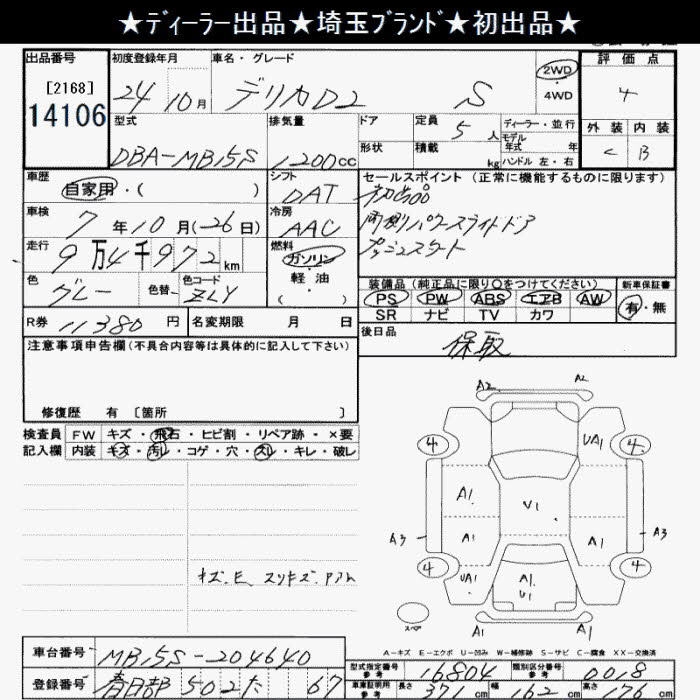 ★ディーラー出品★埼玉ブランド★初出品★
出品番号 初度登録年月 車名・グレード 2WD 4WD 評価点
[2168] 14106 24 10月 デリカD2 S 4
型式 排気量 ドア 定員 5人 ディーラー・並行 外装 内装
形状 積載 kg モデル年式 年式 ハンドル 左・右 C B
DBA-MB15S 1200cc
車歴 シフト セールスポイント (正常に機能するものに限ります)
自家用・( ) DAT 初出品
車検 7年10月(26日) 冷房 AAC 両側パワースライドドア
走行 9万4千972km 燃料 ガソリン・軽油( ) プッシュスタート
色 グレー 色替 色コード ZLY
装備品(純正品に限り○をつけてください) 新車保証書
PS PW ABS エアB AW 有・無
SR ナビ TV カワ
R券 11380円 名変期限 月 日
後日品 保取
注意事項申告欄(不具合内容等は具体的に記入して下さい)
修復歴 有 [箇所 ]
検査員 FW キズ・飛石・ヒビ割・リペア跡・×要
記入欄 内装 キズ・汚レ・コゲ・穴・スレ・キレ・破レ
A2 A2
4 UA1 4
A1 U1
A3 A1 A1 A3
4 UA1 A1 U1 4
スペア A1 A1
キズ、E、スリキズ、
A-キズ E-エクボ U-凹み W-補修跡 S-サビ C-腐食 XX-交換済
車台番号 MB15S-204640
型式指定番号 参考 16804 類別区分番号 参考 0018
登録番号 春日部 502 た 67
車庫証明用 参考 長さ 371cm 幅 162cm 高さ 176cm